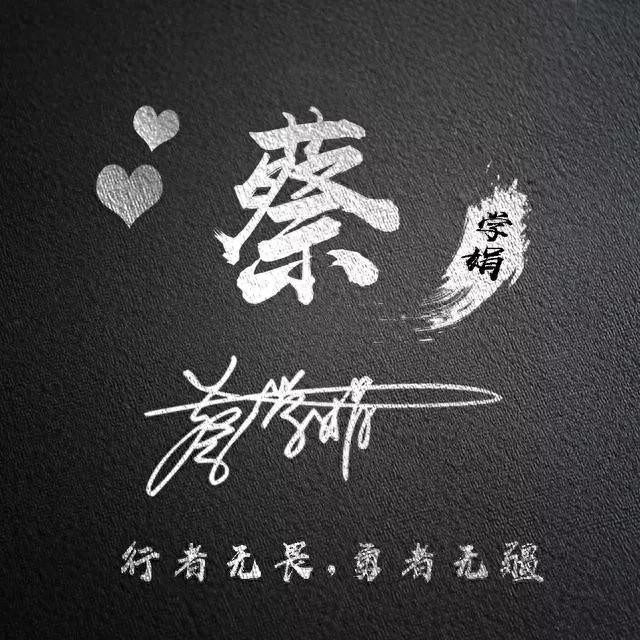 蔡
学
娟
蔡学娟
行者无畏,勇者无疆